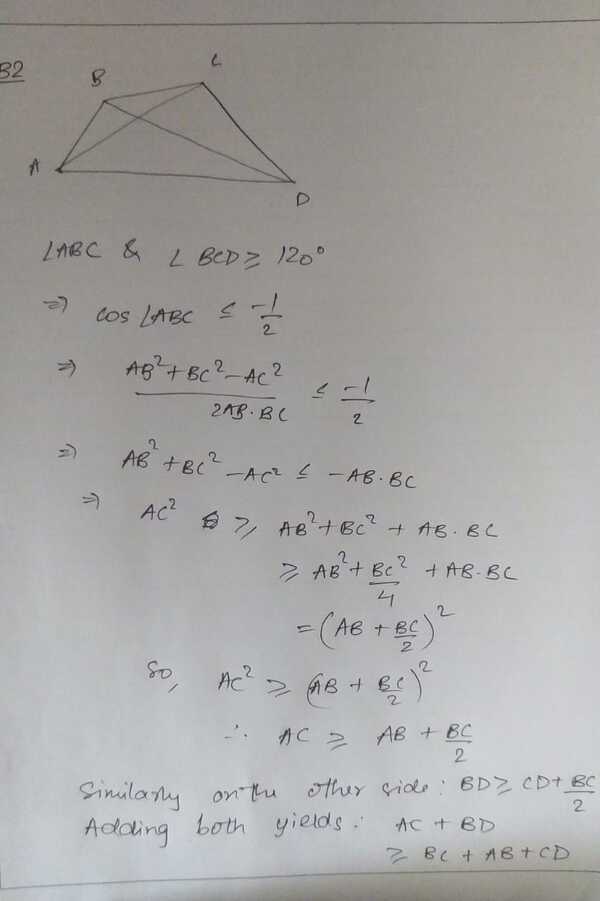 B2
B
C
A
D
∠ABC & ∠BCD ≥ 120°
⇒ cos∠ABC ≤ -1/2
⇒ (AB²+BC²-AC²)/(2AB·BC) ≤ -1/2
⇒ AB²+BC²-AC² ≤ -AB·BC
⇒ AC² ≥ AB²+BC²+AB·BC
≥ AB²+BC²/4+AB·BC
= (AB+BC/2)²
So, AC² ≥ (AB+BC/2)²
∴ AC ≥ AB+BC/2
Similarly on the other side: BD ≥ CD+BC/2
Adding both yields: AC+BD
≥ BC+AB+CD